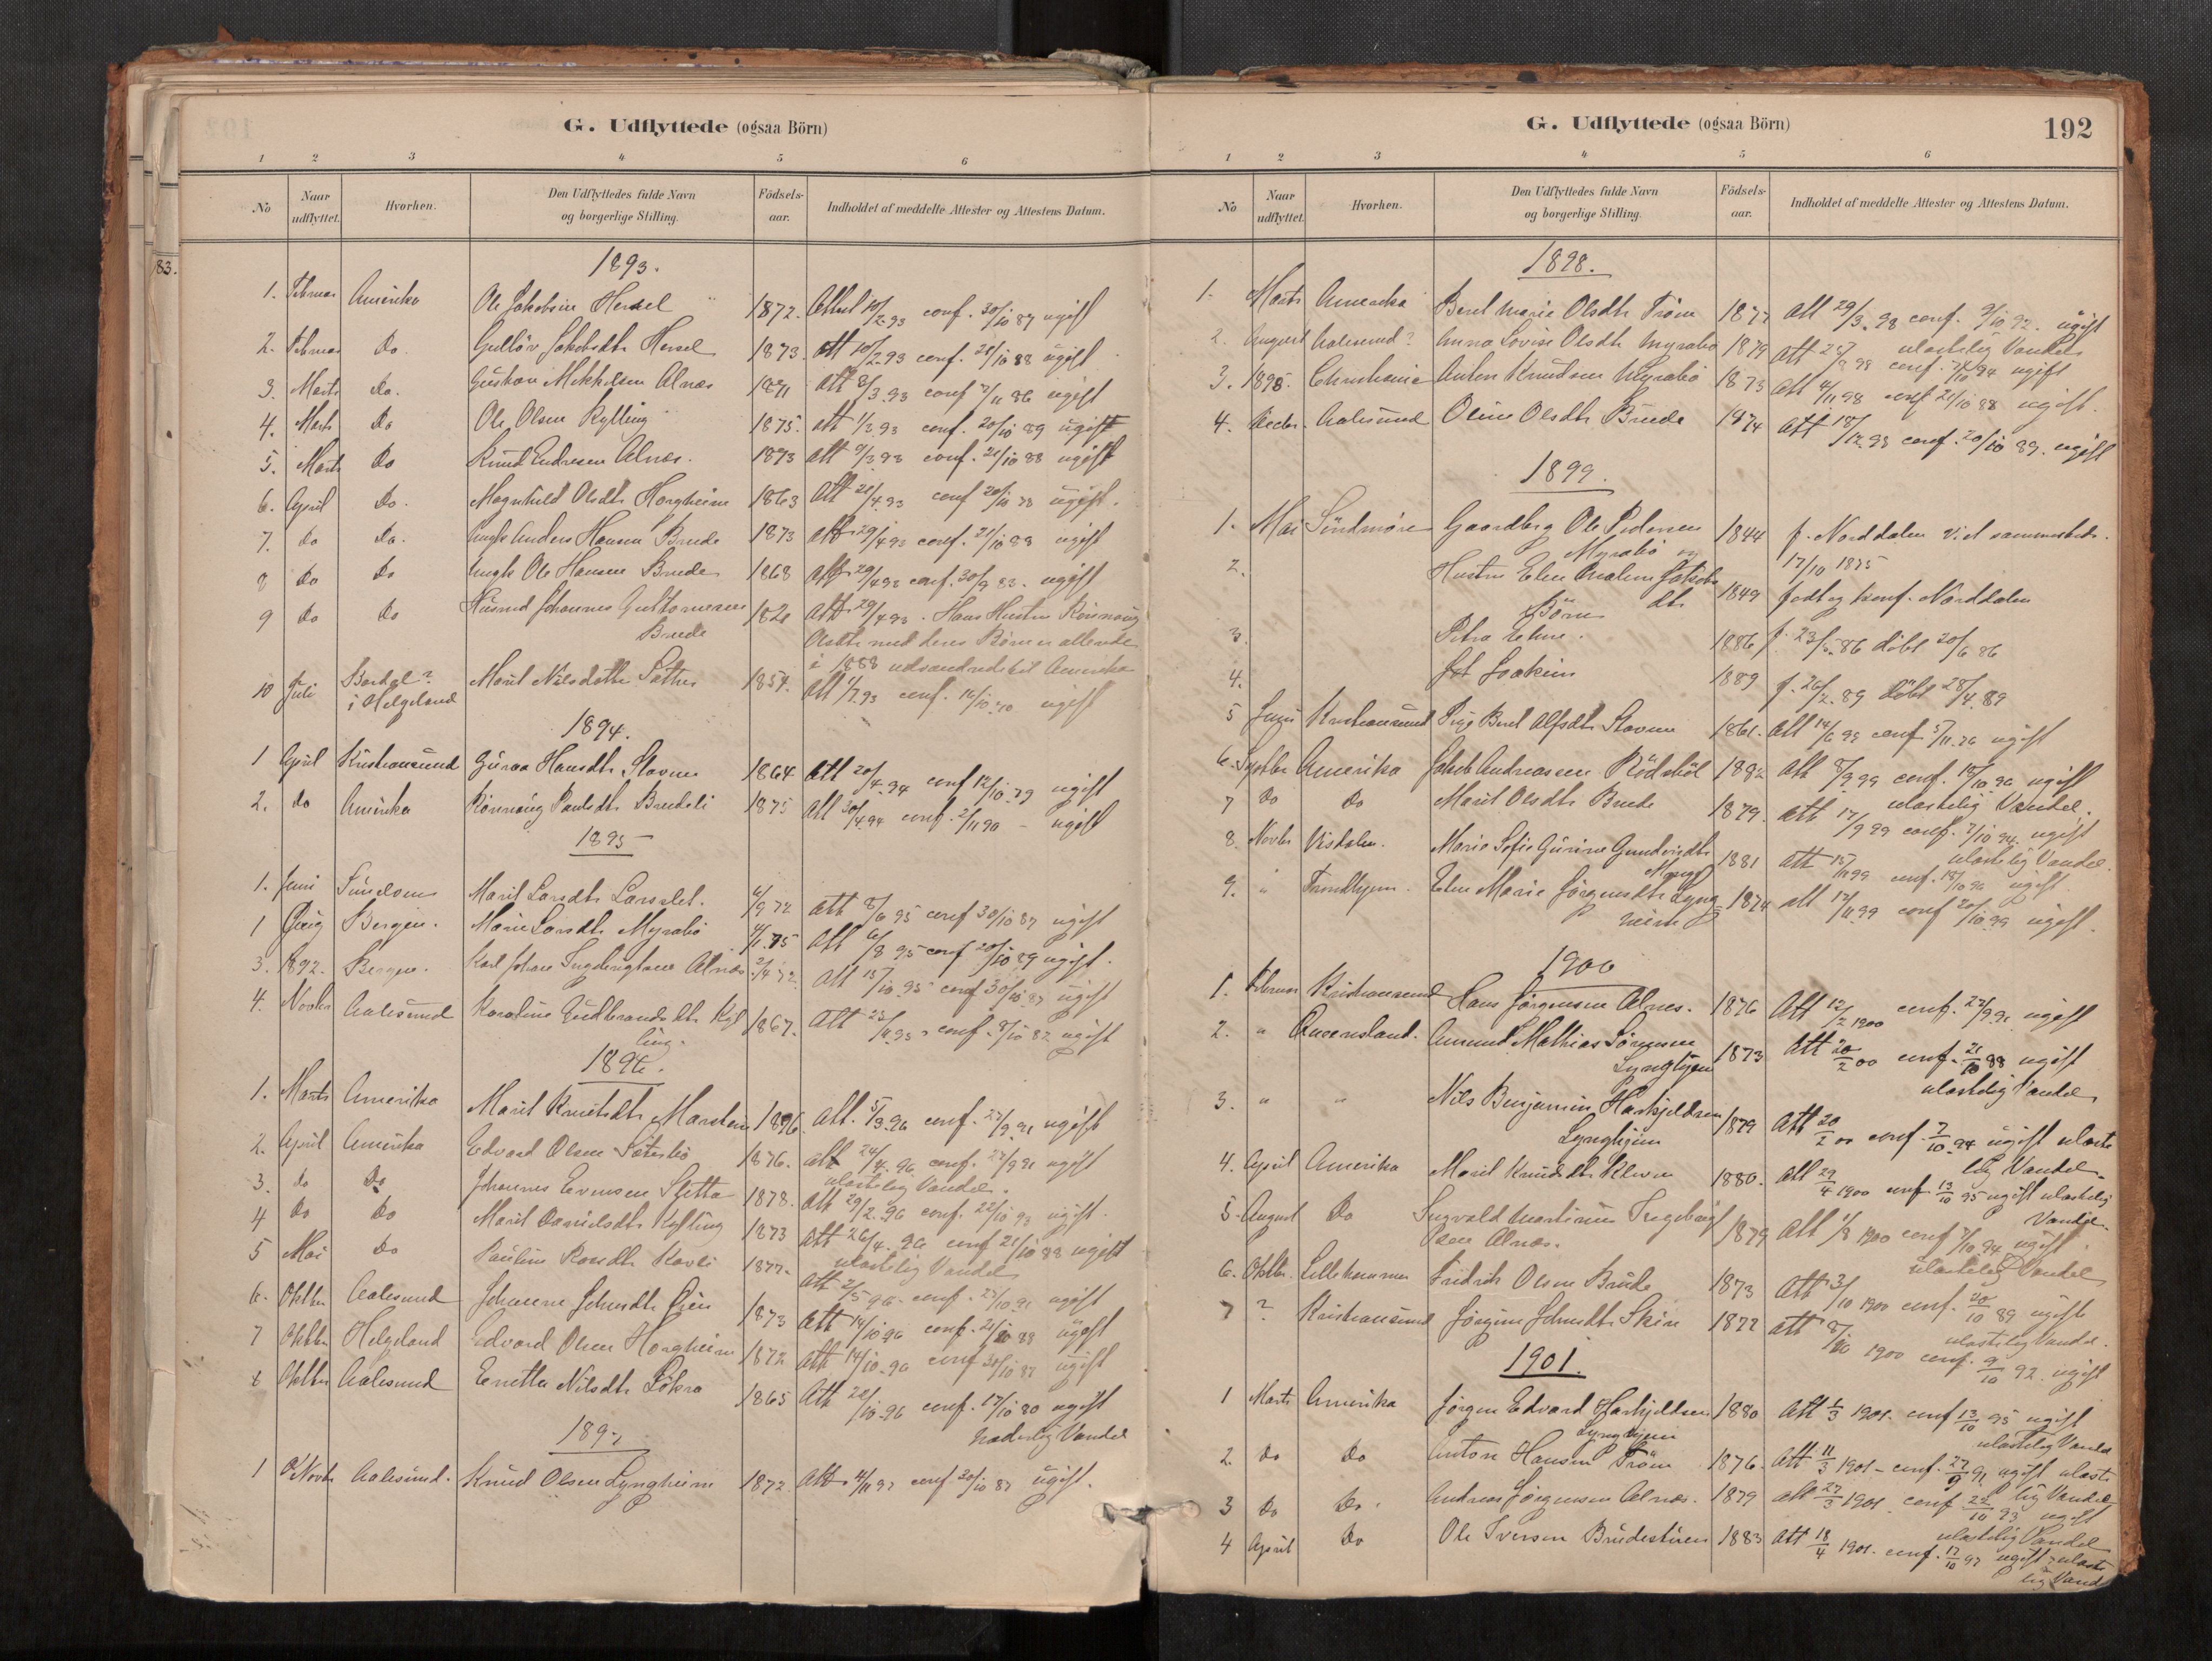 G. Udflyttede (ogsaa Börn)
1 2 3 4 5 6
No
Naar udflyttet.
Hvorhen.
Den Udflyttedes fulde Navn og borgerlige Stilling.
Födsels-aar.
Indholdet af meddelte Attester og Attestens Datum.
83.
1893.
1. Februar Amerika Ole Jakobsen Hersel 1872. Attest 10/2 93 conf. 30/10 87 ugift
2. Februar Do. Gullöv Jakobsdtr Hersel 1873. Att 10/2 93 conf. 21/10 88 ugift
3. Marts do. Gustav Mikkelsen Alnæs 1871 att 8/3 93 conf 7/11 86 ugift
4. Marts Do Ole Olsen Kylling 1875. att 1/3 93 conf. 20/10 89 ugift
5. Marts Do Knud Endresen Alnæs. 1873 att 9/3 93 conf. 21/10 88 ugift
6. April Do. Magnhild Olsdtr Horgheim 1863 Att 21/4 93 conf 20/10 78 ugift.
7. Do Do. Ungk Anders Hansen Brude 1873 att 29/4 93 conf. 21/10 88 ugift
8 Do Do Ungk Ole Hansen Brude 1868 att 29/4 93 conf. 30/9 83. ugift
9 Do Do Huusmd Johannes Guttormsen 182 att 29/4 93. Hans Hustru Rönnaug
Brude Olsdtr med deres Börn er allerede
i 1888 udvandrede til Amerika
10 Juli Bardal? i Helgeland Marit Nilsdatter Sæther 1854. att 1/7 93 conf. 16/10 70 ugift
1894.
1 April Kristiansund Guroa Hansdtr Stavne 1864 Att 20/4 94 conf 12/10 79 ugift
2. do Amerika Rönnaug Paulsdtr Brudeli 1875 Att 30/4 94 conf. 2/11 90 - ugift
1895
1. Juni Marit Larsdtr Larsslet. 4/9 72 Att 8/6 95 conf 30/10 87 ugift
1 Bergen. Marie Larsdtr Myrabö 4/1 75 Att 6/8 95 conf 20/10 89 ugift.
3. 1892. Bergen. Karl Johan Alnæs 2/4 72. Att 15/10 95 conf 30/10 87 ugift
4. Novbr Aalesund Karoline Gudbrandsdtr Kyl 1867. Att 23/11 95 conf. 8/10 82 ugift
ling.
1896.
1. Marts Amerika Marit Knutsdtr Marstein 1896. Att. 5/3 96 conf. 27/9 91 ugift
2. April Amerika Edvard Olsen Sæterbö 1876. att 24/4 96 conf. 27/9 91 ugift
ulastelig Vandel.
3. do Do Johannes Evensen Sletta 1878. Att 29/2 96 conf. 22/10 93 ugift.
4 Do Do Marit Danielsdtr Kylling 1873 Att 26/4. 96 conf 21/10 88 ugift
ulastelig Vandel
5 Mai Do Pauline Larsdtr Kavli 1877. att 2/5 96. conf. 27/9 91 ugift
6. Oktbr Aalesund Johanne Johnsdtr Öien 1873 Att 14/10 96 conf. 21/10 88 ugift
7 Oktbr Helgeland Edvard Olsen Horgheim 1872 att 14/10 96 conf 30/10 87 ugift
8 Oktbr Aalesund Enetta Nilsdtr Løkra 1865 Att 22/10 96 conf. 17/10 80 ugift
hæderlig Vandel
1897
1 Novbr Aalesund. Knud Olsen Lyngheim 1872. Att 4/11 97 conf 30/10 87 ugift.
G. Udflyttede (ogsaa Börn)
192
1 2 3 4 5 6
No
Naar udflyttet.
Hvorhen.
Den Udflyttedes fulde Navn og borgerlige Stilling.
Födsels-aar.
Indholdet af meddelte Attester og Attestens Datum.
1898.
1. Marts Amerika Beret Marie Olsdtr Tröen 1877 att 29/3 98 conf. 9/10 92. ugift
ulastelig Vandel
2. August Aalesund? Anna Lovise Olsdtr Myrabö 1879 att 25/8 98 conf. 7/10 94 ugift
3. 1898. Christiania Anton Knudsen Myrabö 1873 att 4/11 98 conf 21/10 88 ugift.
4. Decbr. Aalesund Oline Olsdtr Brude 1874 Att 18/12 98 conf. 20/10 89. ugift
1899.
1. Mai Söndmöre Gaardbrg Ole Pedersen 1844 f. Norddalen v. d sammesteds.
Myrabö og 17/10 1875
2. Hustru Elen Malene Jakobs 1849 født og konf. Norddalen
dtr
Börn
3. Petra Eline. 1886 f. 23/5 86 döbt 20/6 86
4. Joakim 1889 f. 26/2. 89 döbt 28/4. 89
5 Juni Kristiansund Pige Beret Alfsdtr Stavne 1861. Att 14/6 99 conf 5/11 76 ugift
6. Septbr Amerika Jakob Andreassen Rödsböl 1882 Att 8/9 99 conf. 18/10 96 ugift
ulastelig Vandel.
7 Do Do Marit Olsdtr Brude 1879. att 17/9 99 conf. 7/10 94. ugift
ulastelig Vandel.
8. Novbr Visdalen. Marie Sofie Gurine 1881 att 15/11 99 conf. 18/10 96 ugift.
9. " Trondhjem. Eline Marie Jörgensdtr Lyng 1874 att 17/11 99 conf 20/10 99 ugift.
heim
1900
1. Februar Kristiansund Hans Jörgensen Alnes. 1876 Att 12/2 1900 conf. 27/9 91 ugift
2. " Queensland. Amund Mathias Jörgensen 1873 Att 20/2 00 conf. 21/10 88 ugift
Lynghjem ulastelig Vandel
3. " " Nils Benjamin Haskjeldsen 1879 Att 20/2 00 conf. 7/10 94 ugift ulaste
Lynghjem lig Vandel.
4. April Amerika Marit Knudsdtr Kleven 1880. Att 29/4 1900 conf 13/10 95 ugift ulastelig
Vandel.
5. August Do Ingvald Martinus Ingebrigt 1879 Att 1/8 1900 conf 7/10 94 ugift.
sen Alnæs. ulastelig Vandel
6. Oktbr. Lillehammer Fridrik Olsen Brude 1873 Att 3/10 1900 conf. 20/10 89 ugift
ulastelig Vandel.
7 ? Kristiansund Jörgine Johnsdtr Skiri 1877 att 8/10 1900 conf. 9/10 92. ugift
1901.
1 Marts Amerika Jörgen Edvard Haskjeldsen 1880 Att 1/3 1901. conf 13/10 95 ugift
Lynghjem ulastelig Vandel
2. Do Do Anton Hansen Tröen 1876. Att 11/3 1901 - conf. 27/9 91 ugift ulaste
lig Vandel
3 Do Do. Andreas Jörgensen Alnæs. 1879 att 27/3 1901. conf 22/10 93 ugift
ulastelig Vandel
4 April Do Ole Iversen Brudestuen 1883 Att 18/4 1901. conf. 17/10 97 ugift ulaste
lig Vand